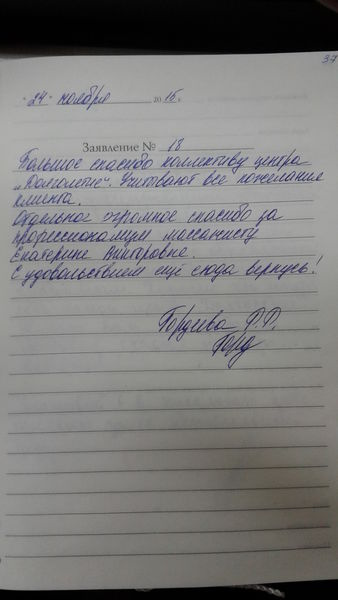 37
"24" ноября 2015 г.
Заявление № 18
Большое спасибо коллективу центра
„Долголетие". Учитывают все пожелания
клиента.
Отдельное огромное спасибо за
профессионализм массажисту
Екатерине Викторовне.
С удовольствием ещё сюда вернусь!
Гордеева
Горд